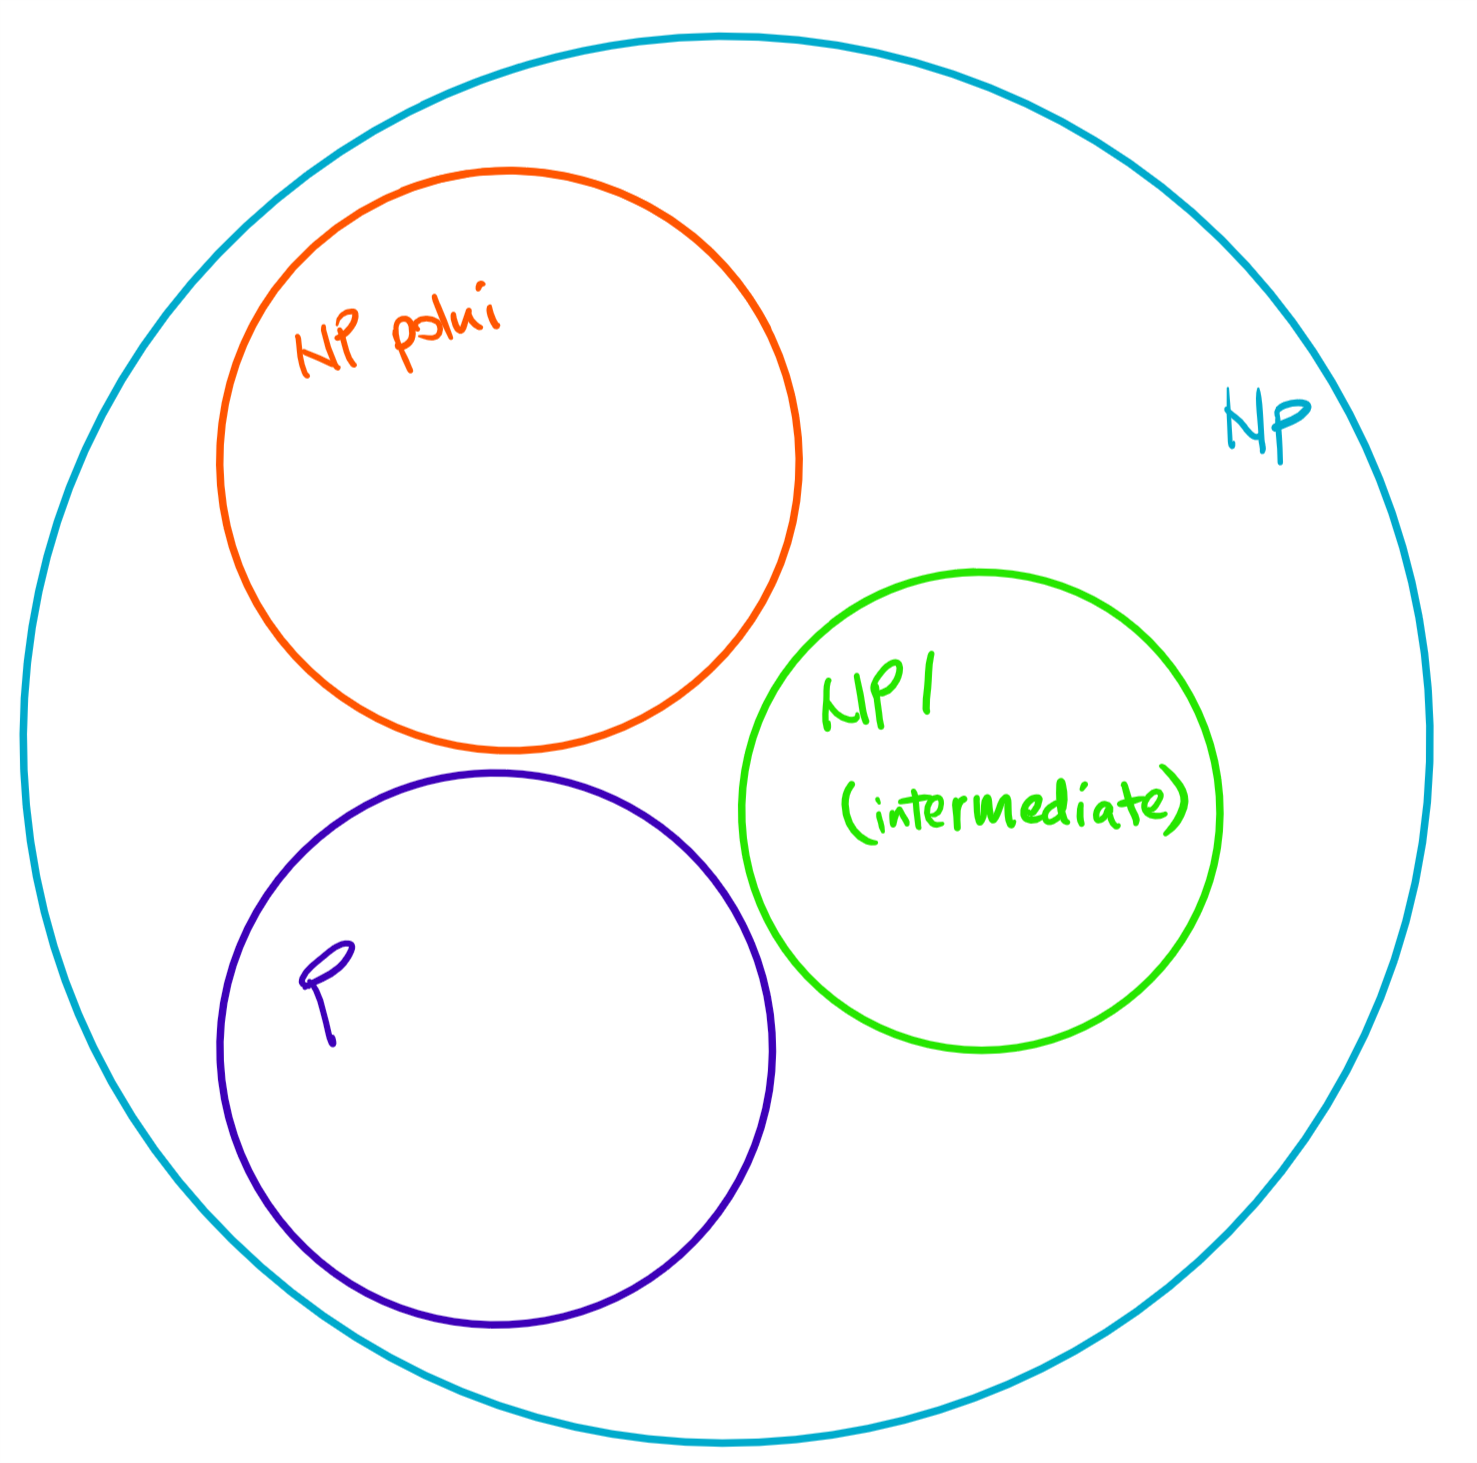 NP polni
NP
NPI
(intermediate)
P